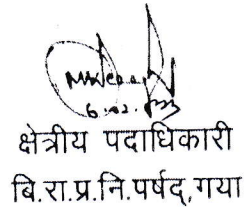 क्षेत्रीय पदाधिकारी
बि.रा.प्र.नि.पर्षद्,गया